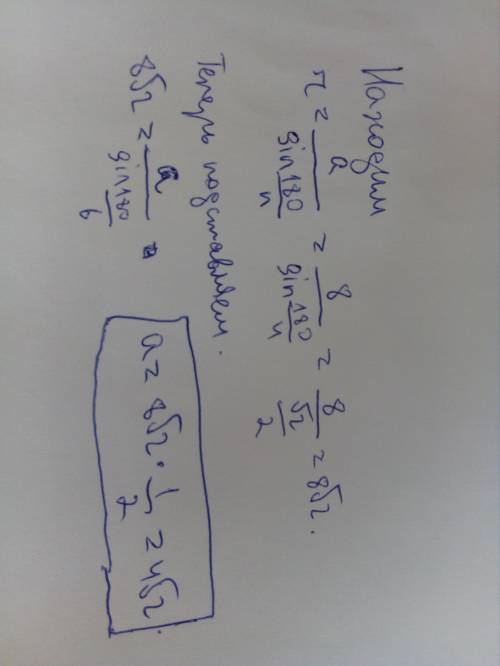 Находим
r = a / sin 180/n = 8 / sin 180/4 = 8 / √2/2 = 8√2.
Теперь подставляем.
8√2 = a / sin 180/6
a = 8√2 · 1/2 = 4√2.